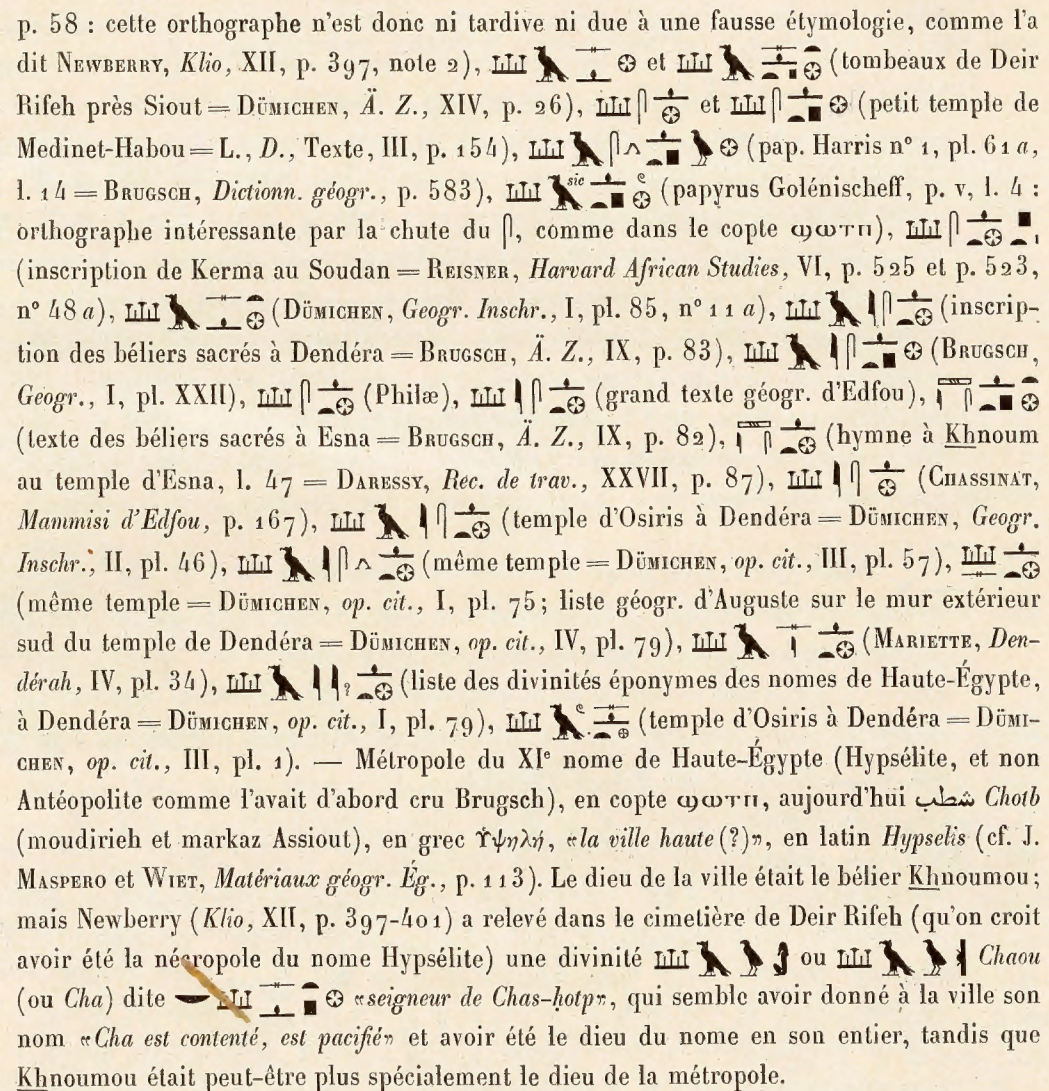 p. 58 : cette orthographe n'est donc ni tardive ni due à une fausse étymologie, comme l'a
dit NEWBERRY, Klio, XII, p. 397, note 2), et (tombeaux de Deir
Rifeh près Siout = DÜMICHEN, Ä. Z., XIV, p. 26), et (petit temple de
Medinet-Habou = L., D., Texte, III, p. 154), (pap. Harris n° 1, pl. 61 a,
l. 14 = BRUGSCH, Dictionn. géogr., p. 583), sic (papyrus Golénischeff, p. v, l. 4 :
orthographe intéressante par la chute du 𓋴, comme dans le copte ϣⲱⲧⲡ),
(inscription de Kerma au Soudan = REISNER, Harvard African Studies, VI, p. 525 et p. 523,
n° 48 a), (DÜMICHEN, Geogr. Inschr., I, pl. 85, n° 11 a), (inscrip-
tion des béliers sacrés à Dendéra = BRUGSCH, Ä. Z., IX, p. 83), (BRUGSCH,
Geogr., I, pl. XXII), (Philæ), (grand texte géogr. d'Edfou),
(texte des béliers sacrés à Esna = BRUGSCH, Ä. Z., IX, p. 82), (hymne à Khnoum
au temple d'Esna, l. 47 = DARESSY, Rec. de trav., XXVII, p. 87), (CHASSINAT,
Mammisi d'Edfou, p. 167), (temple d'Osiris à Dendéra = DÜMICHEN, Geogr.
Inschr., II, pl. 46), (même temple = DÜMICHEN, op. cit., III, pl. 57),
(même temple = DÜMICHEN, op. cit., I, pl. 75; liste géogr. d'Auguste sur le mur extérieur
sud du temple de Dendéra = DÜMICHEN, op. cit., IV, pl. 79), (MARIETTE, Den-
dérah, IV, pl. 34), (liste des divinités éponymes des nomes de Haute-Égypte,
à Dendéra = DÜMICHEN, op. cit., I, pl. 79), (temple d'Osiris à Dendéra = DÜMI-
CHEN, op. cit., III, pl. 1). — Métropole du XIe nome de Haute-Égypte (Hypsélite, et non
Antéopolite comme l'avait d'abord cru Brugsch), en copte ϣⲱⲧⲡ, aujourd'hui شطب Chotb
(moudirieh et markaz Assiout), en grec Ὑψηλή, «la ville haute (?)», en latin Hypselis (cf. J.
MASPERO et WIET, Matériaux géogr. Ég., p. 113). Le dieu de la ville était le bélier Khnoumou;
mais Newberry (Klio, XII, p. 397-401) a relevé dans le cimetière de Deir Rifeh (qu'on croit
avoir été la nécropole du nome Hypsélite) une divinité ou Chaou
(ou Cha) dite «seigneur de Chas-ḥotp», qui semble avoir donné à la ville son
nom «Cha est contenté, est pacifié» et avoir été le dieu du nome en son entier, tandis que
Khnoumou était peut-être plus spécialement le dieu de la métropole.